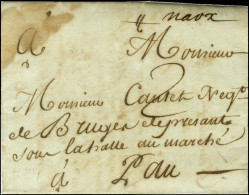 navx
à Monsieur
Monsieur Cautet Neg.
de Bruges de presant
sous la halle au marché
à Pau